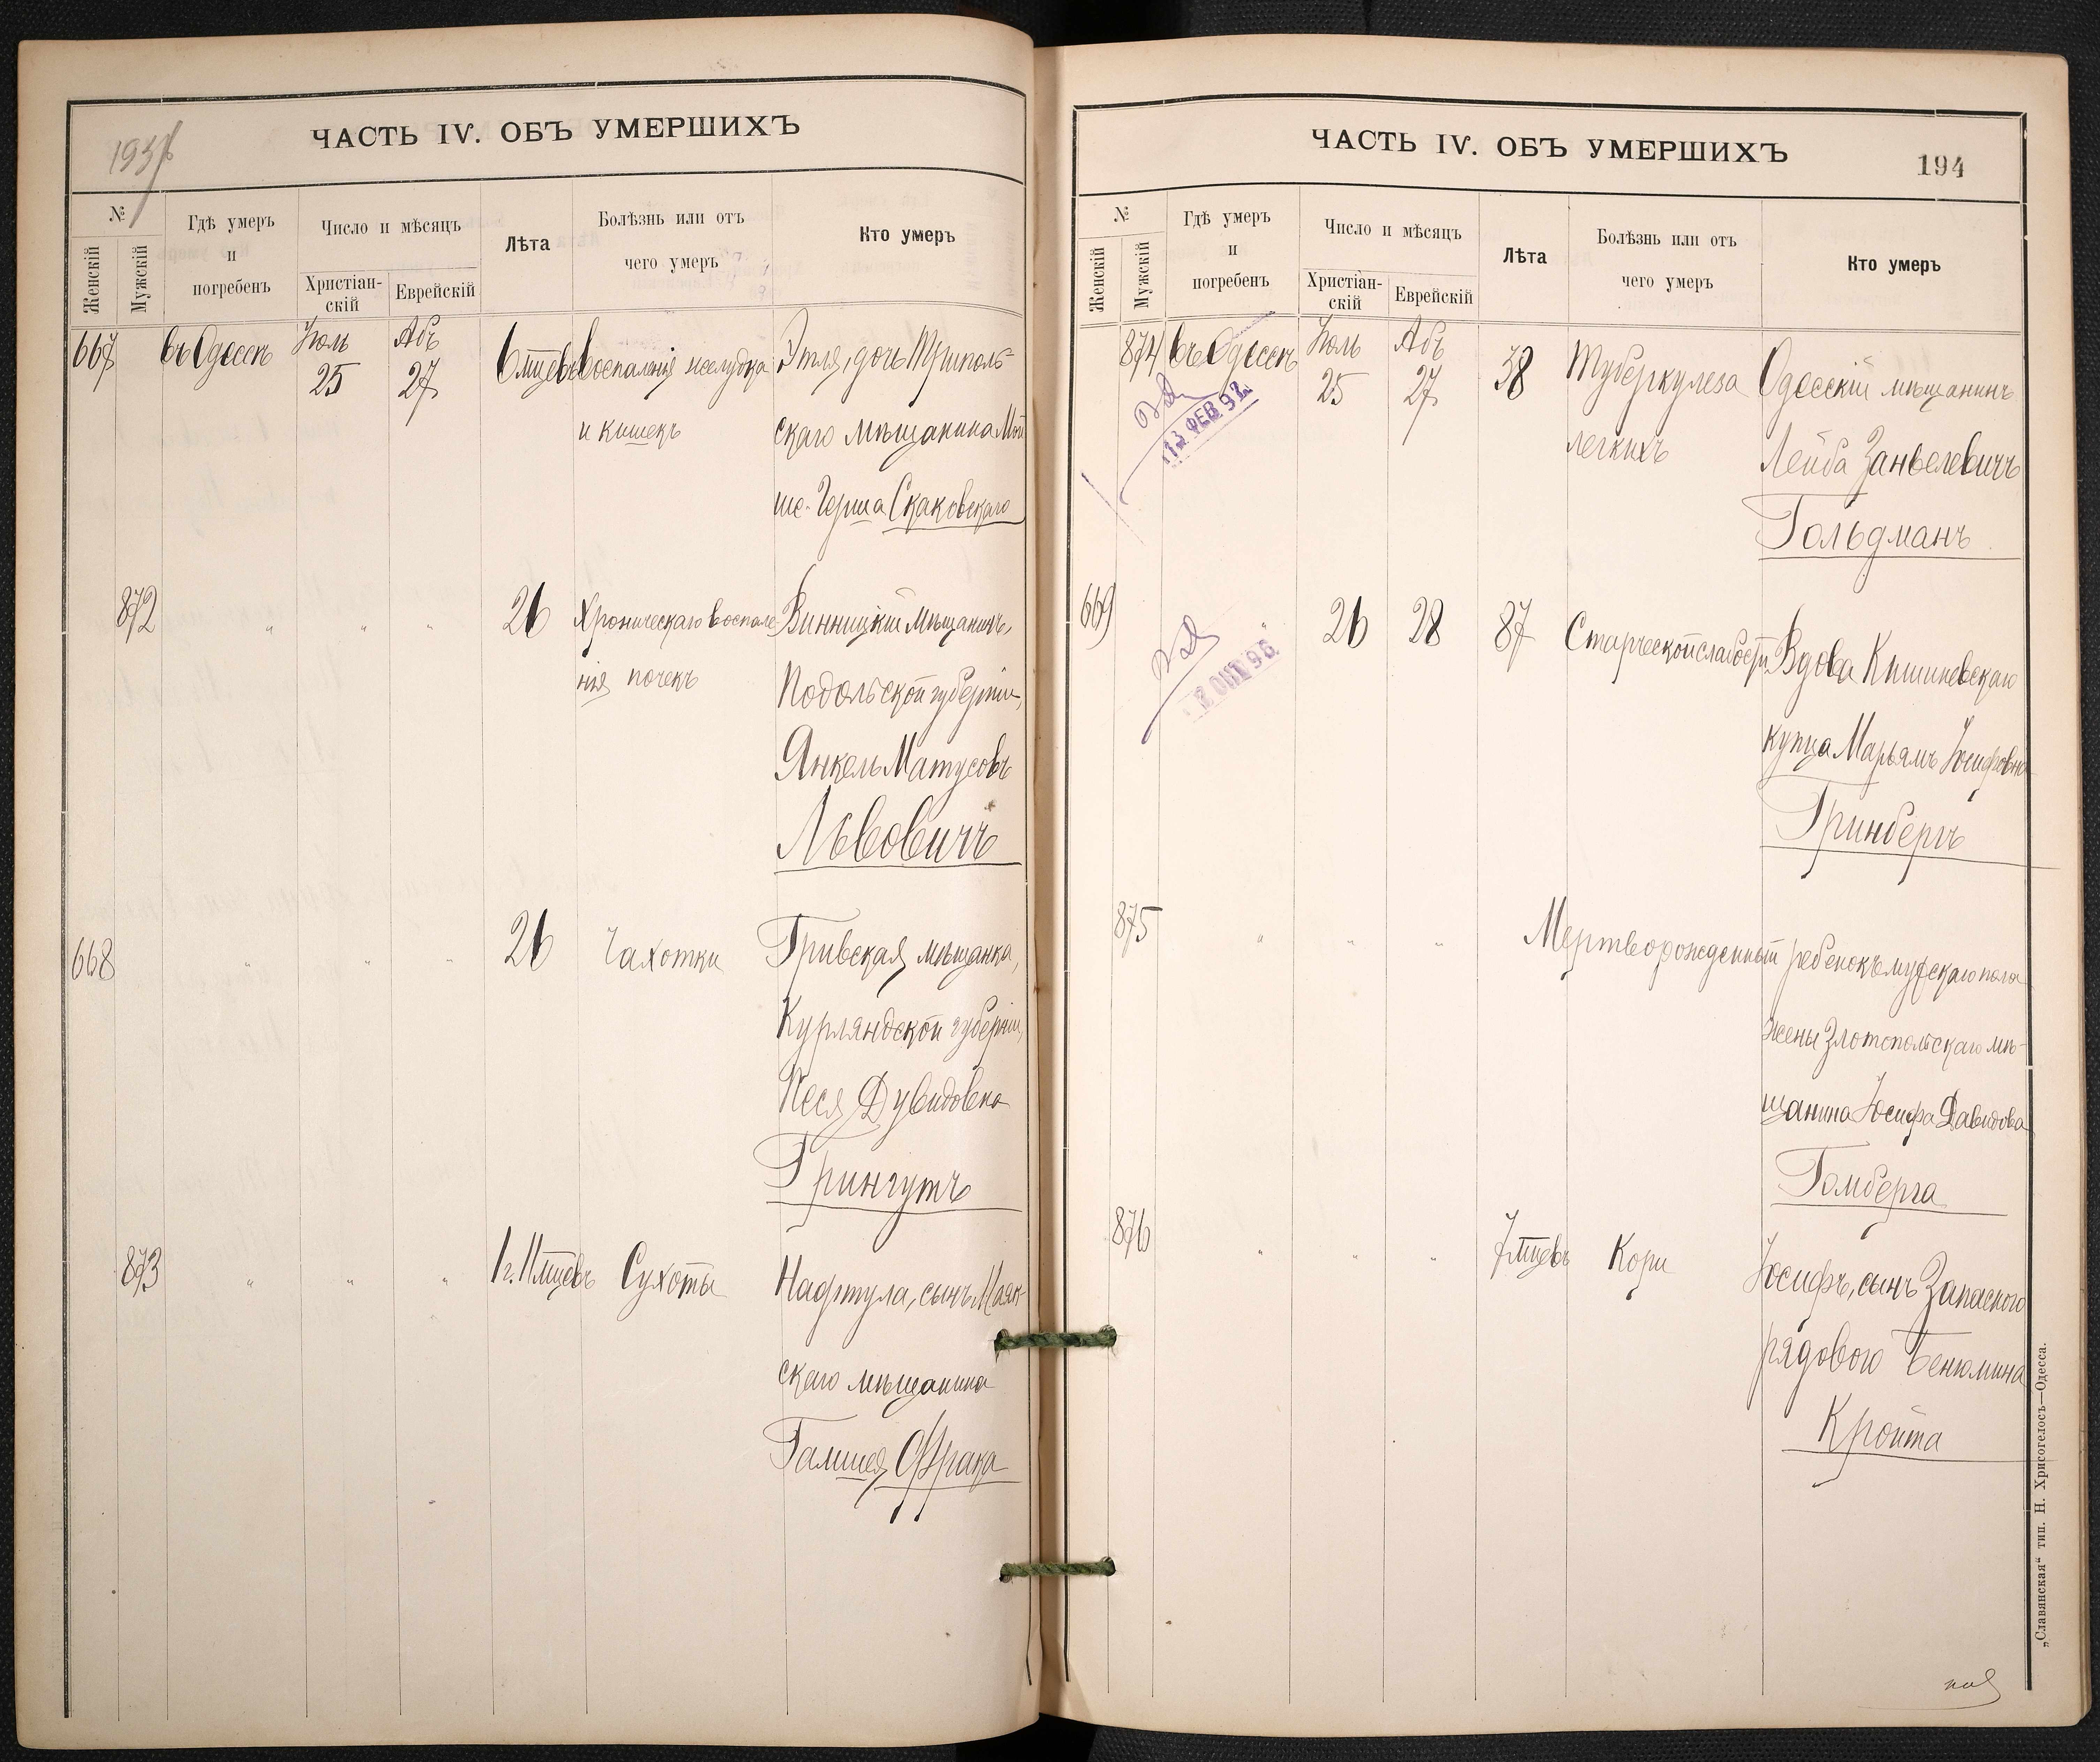 193
ЧАСТЬ IV. ОБЪ УМЕРШИХЪ
№
Женскій
Мужскій
Гдѣ умеръ
и
погребенъ
Число и мѣсяцъ
Христіан-
скій
Еврейскій
Лѣта
Болѣзнь или отъ
чего умеръ
Кто умеръ
667 въ Одессѣ Іюль Абъ 6 мцевъ Воспаленія желудка Этля, дочь Триполь-
25 27
и кишекъ скаго мѣщанина Мой
ше-Герша Скаковскаго
872 " " " 26 Хроническаго воспале- Винницкій Мѣщанинъ,
нія почекъ Подольской губерніи,
Янкель Матусовъ
Львовичъ
668 " " " 26 Чахотки Гривская мѣщанка,
Курляндской губерніи,
Песя Дувидовна
Грингутъ
873 " " " 1 г. 11 мцевъ Сухоты Нафтула, сынъ Маяк-
скаго мѣщанина
Гамшея Фрака
ЧАСТЬ IV. ОБЪ УМЕРШИХЪ
194
№
Женскій
Мужскій
Гдѣ умеръ
и
погребенъ
Число и мѣсяцъ
Христіан-
скій
Еврейскій
Лѣта
Болѣзнь или отъ
чего умеръ
Кто умеръ
874 въ Одессѣ Іюль Абъ 38 Туберкулеза Одесскій мѣщанинъ
25 27
легкихъ Лейба Занвелевичъ
Гольдманъ
13 ФЕВ 92
669 " 26 28 87 Старческой слабости Вдова Кишиневскаго
купца Марьямъ Іосифовна
Гринбергъ
875 " " " Мертворожденный ребенокъ мужскаго пола
жены Златопольскаго мѣ-
щанина Іосифа Давидова
Гомберга
876 " " " 7 мцевъ Кори Іосифъ, сынъ Запаснаго
рядового Бенюмина
Кройта
„Славянская“ тип. Н. Хрисогелосъ—Одесса.